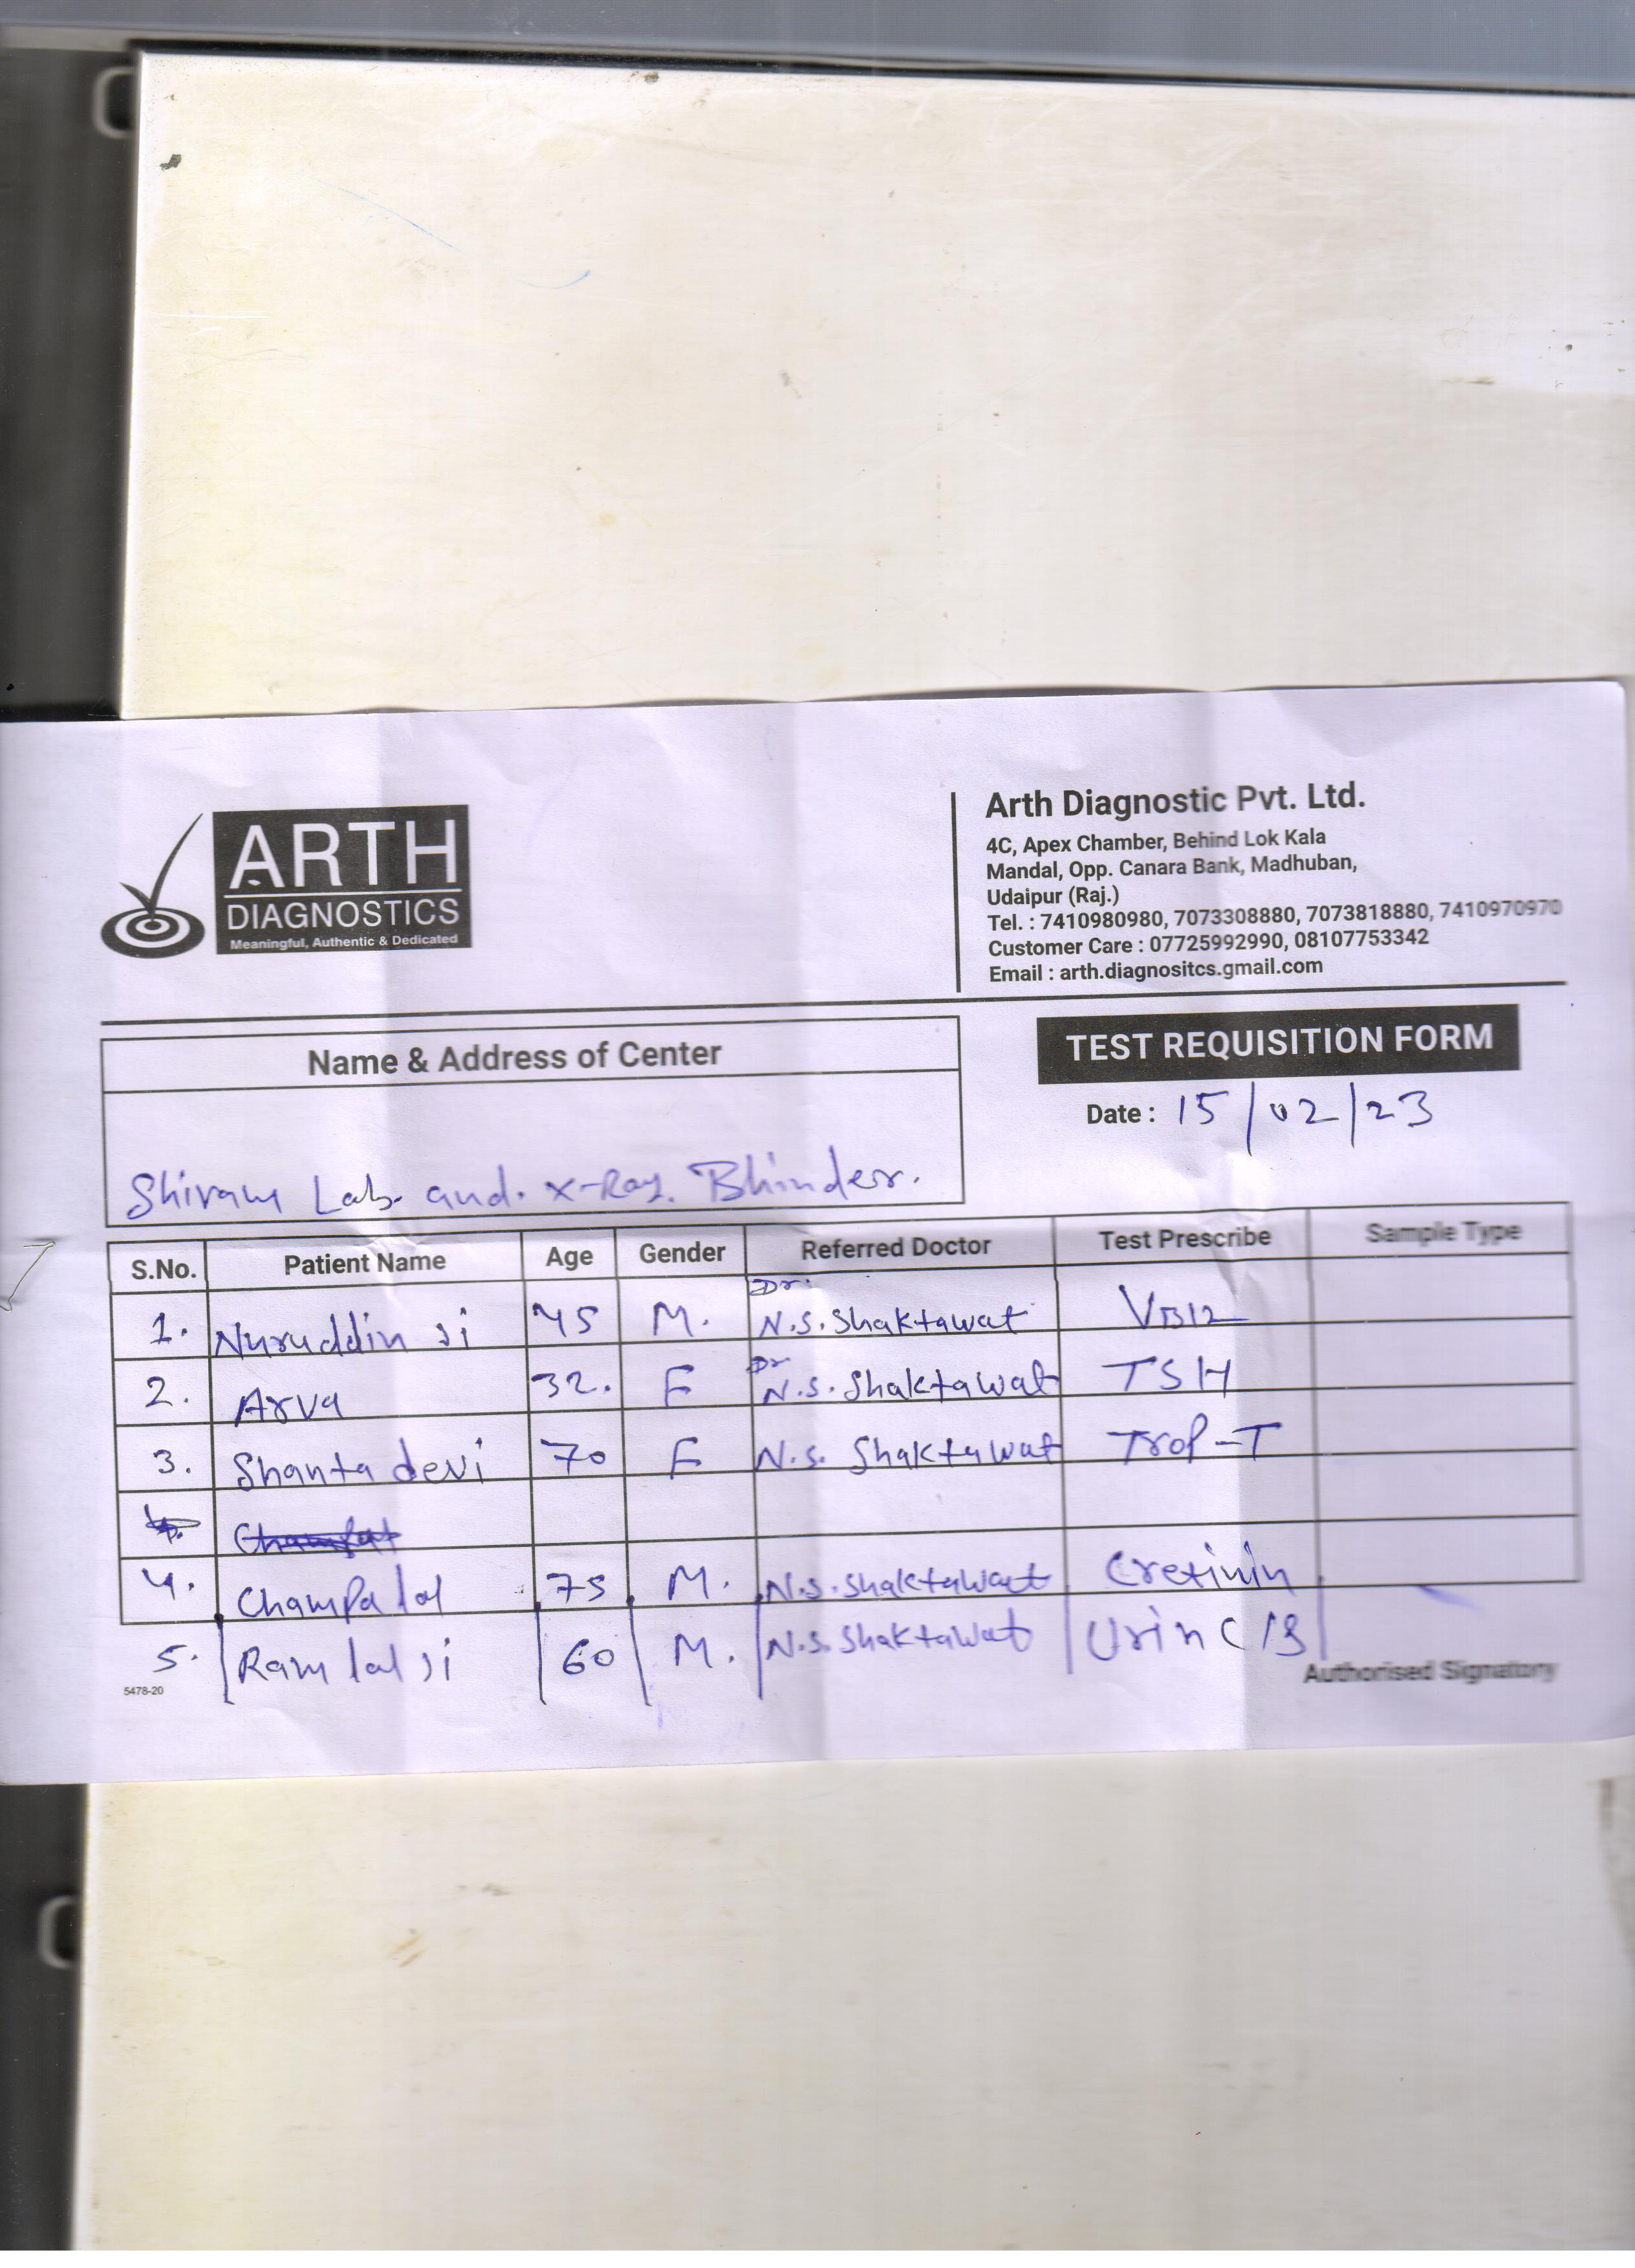 ARTH
DIAGNOSTICS
Meaningful, Authentic & Dedicated
Arth Diagnostic Pvt. Ltd.
4C, Apex Chamber, Behind Lok Kala
Mandal, Opp. Canara Bank, Madhuban,
Udaipur (Raj.)
Tel. : 7410980980, 7073308880, 7073818880, 7410970970
Customer Care : 07725992990, 08107753342
Email : arth.diagnositcs.gmail.com
Name & Address of Center
Shivam Lab and. X-Ray. Bhinder.
TEST REQUISITION FORM
Date : 15/02/23
S.No. Patient Name Age Gender Referred Doctor Test Prescribe Sample Type
1. Nuruddin Ji 45 M. Dr. N.S. Shaktawat VB12
2. Arva 32. F Dr N.S. Shaktawat TSH
3. Shanta devi 70 F N.S. Shaktawat Trop-T
4. Champa lal 75 M. N.S. Shaktawat Cretinin
5. Ram lal Ji 60 M. N.S. Shaktawat Urin C/S
5478-20
Authorised Signatory